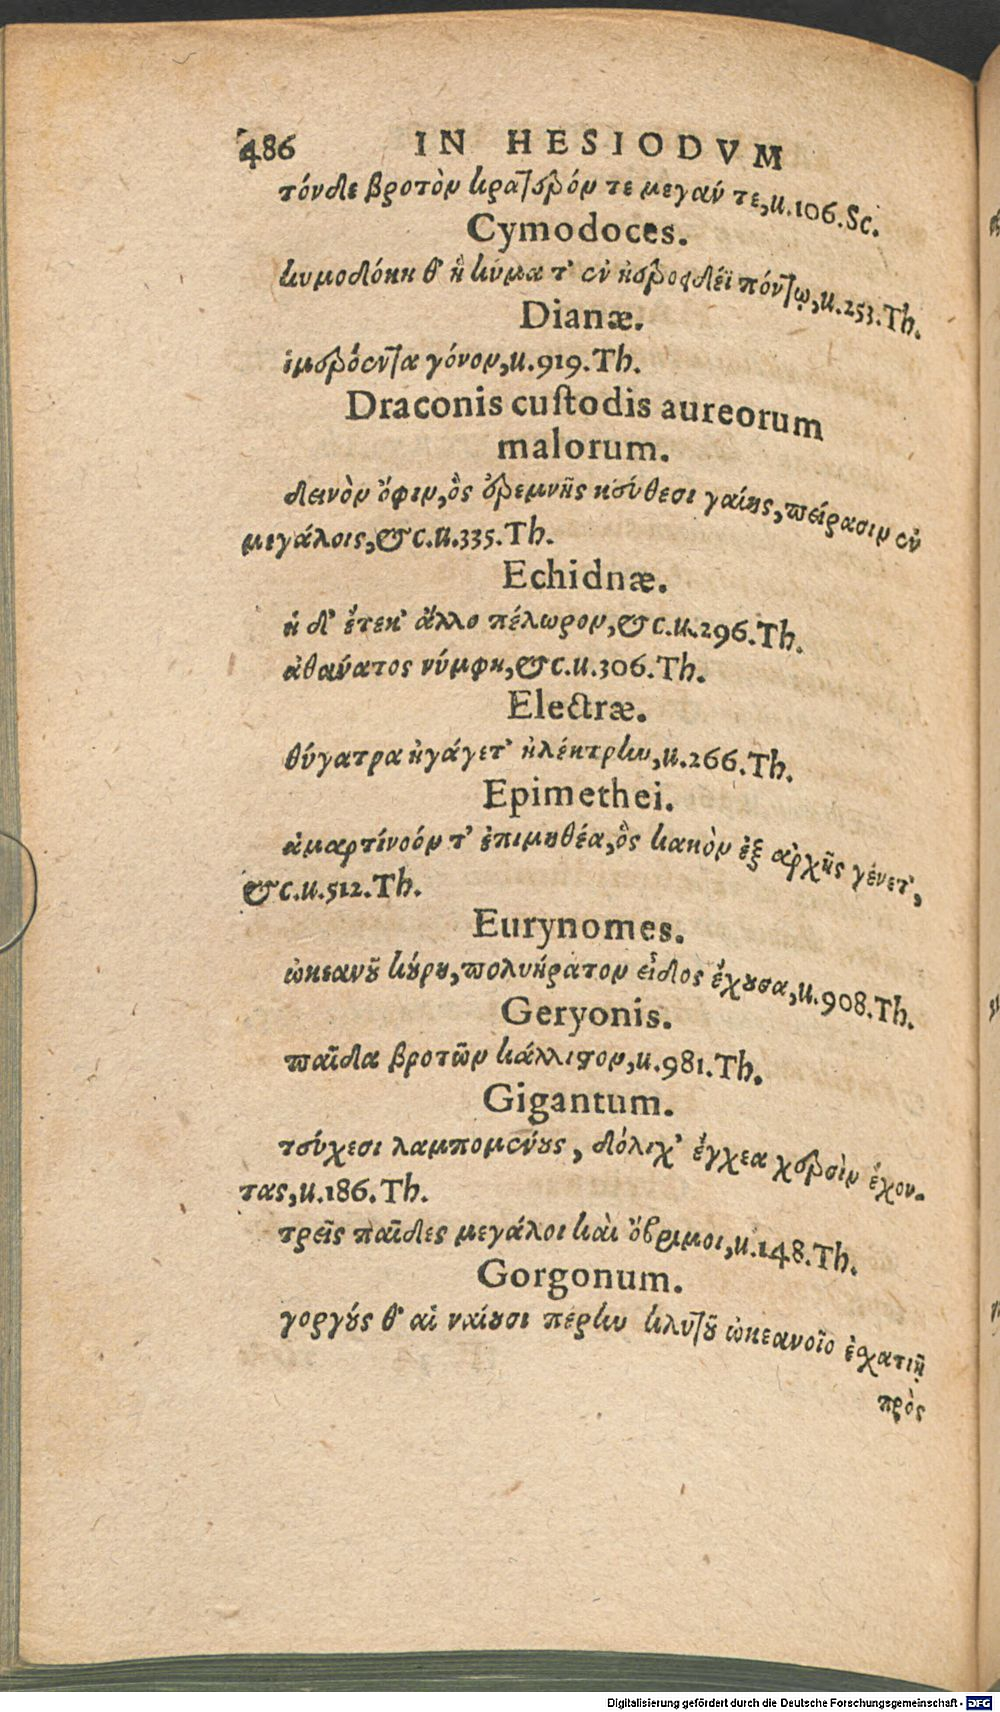 486 IN HESIODVM
τόνδε βροτὸν κρατερόν τε μέγαν τε, u.106.Sc.
Cymodoces.
κυμοδόκη θ' ἣ κύματ' ἐν ἠεροειδέϊ πόντῳ, u.253.Th.
Dianæ.
ἱμερόεντα γόνον, u.919.Th.
Draconis custodis aureorum
malorum.
δεινὸν ὄφιν, ὃς ἐρεμνῆς κεύθεσι γαίης, πείρασιν ἐν
μεγάλοις, &c.u.335.Th.
Echidnæ.
ἡ δ' ἔτεκ' ἄλλο πέλωρον, &c.u.296.Th.
ἀθάνατος νύμφη, &c.u.306.Th.
Electræ.
θύγατρα ἠγάγετ' ἠλέκτρην, u.266.Th.
Epimethei.
ἁμαρτίνοόν τ' ἐπιμηθέα, ὃς κακὸν ἐξ ἀρχῆς γένετ',
&c.u.512.Th.
Eurynomes.
ὠκεανοῦ κούρη, πολυήρατον εἶδος ἔχουσα, u.908.Th.
Geryonis.
παῖδα βροτῶν κάλλιστον, u.981.Th.
Gigantum.
τεύχεσι λαμπομένους, δόλιχ' ἔγχεα χερσὶν ἔχον-
τας, u.186.Th.
τρεῖς παῖδες μεγάλοι καὶ ὄβριμοι, u.148.Th.
Gorgonum.
γοργούς θ' αἱ ναίουσι πέρην κλυτοῦ ὠκεανοῖο ἐσχατιῇ
πρὸς
Digitalisierung gefördert durch die Deutsche Forschungsgemeinschaft - DFG